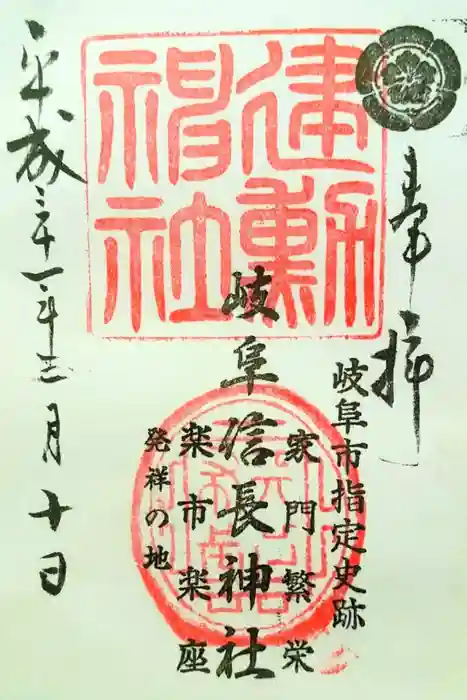 奉拝
岐阜市指定史跡
家門繁栄
建勲神社
岐阜信長神社
楽市楽座
発祥の地
平成三十一年三月十日